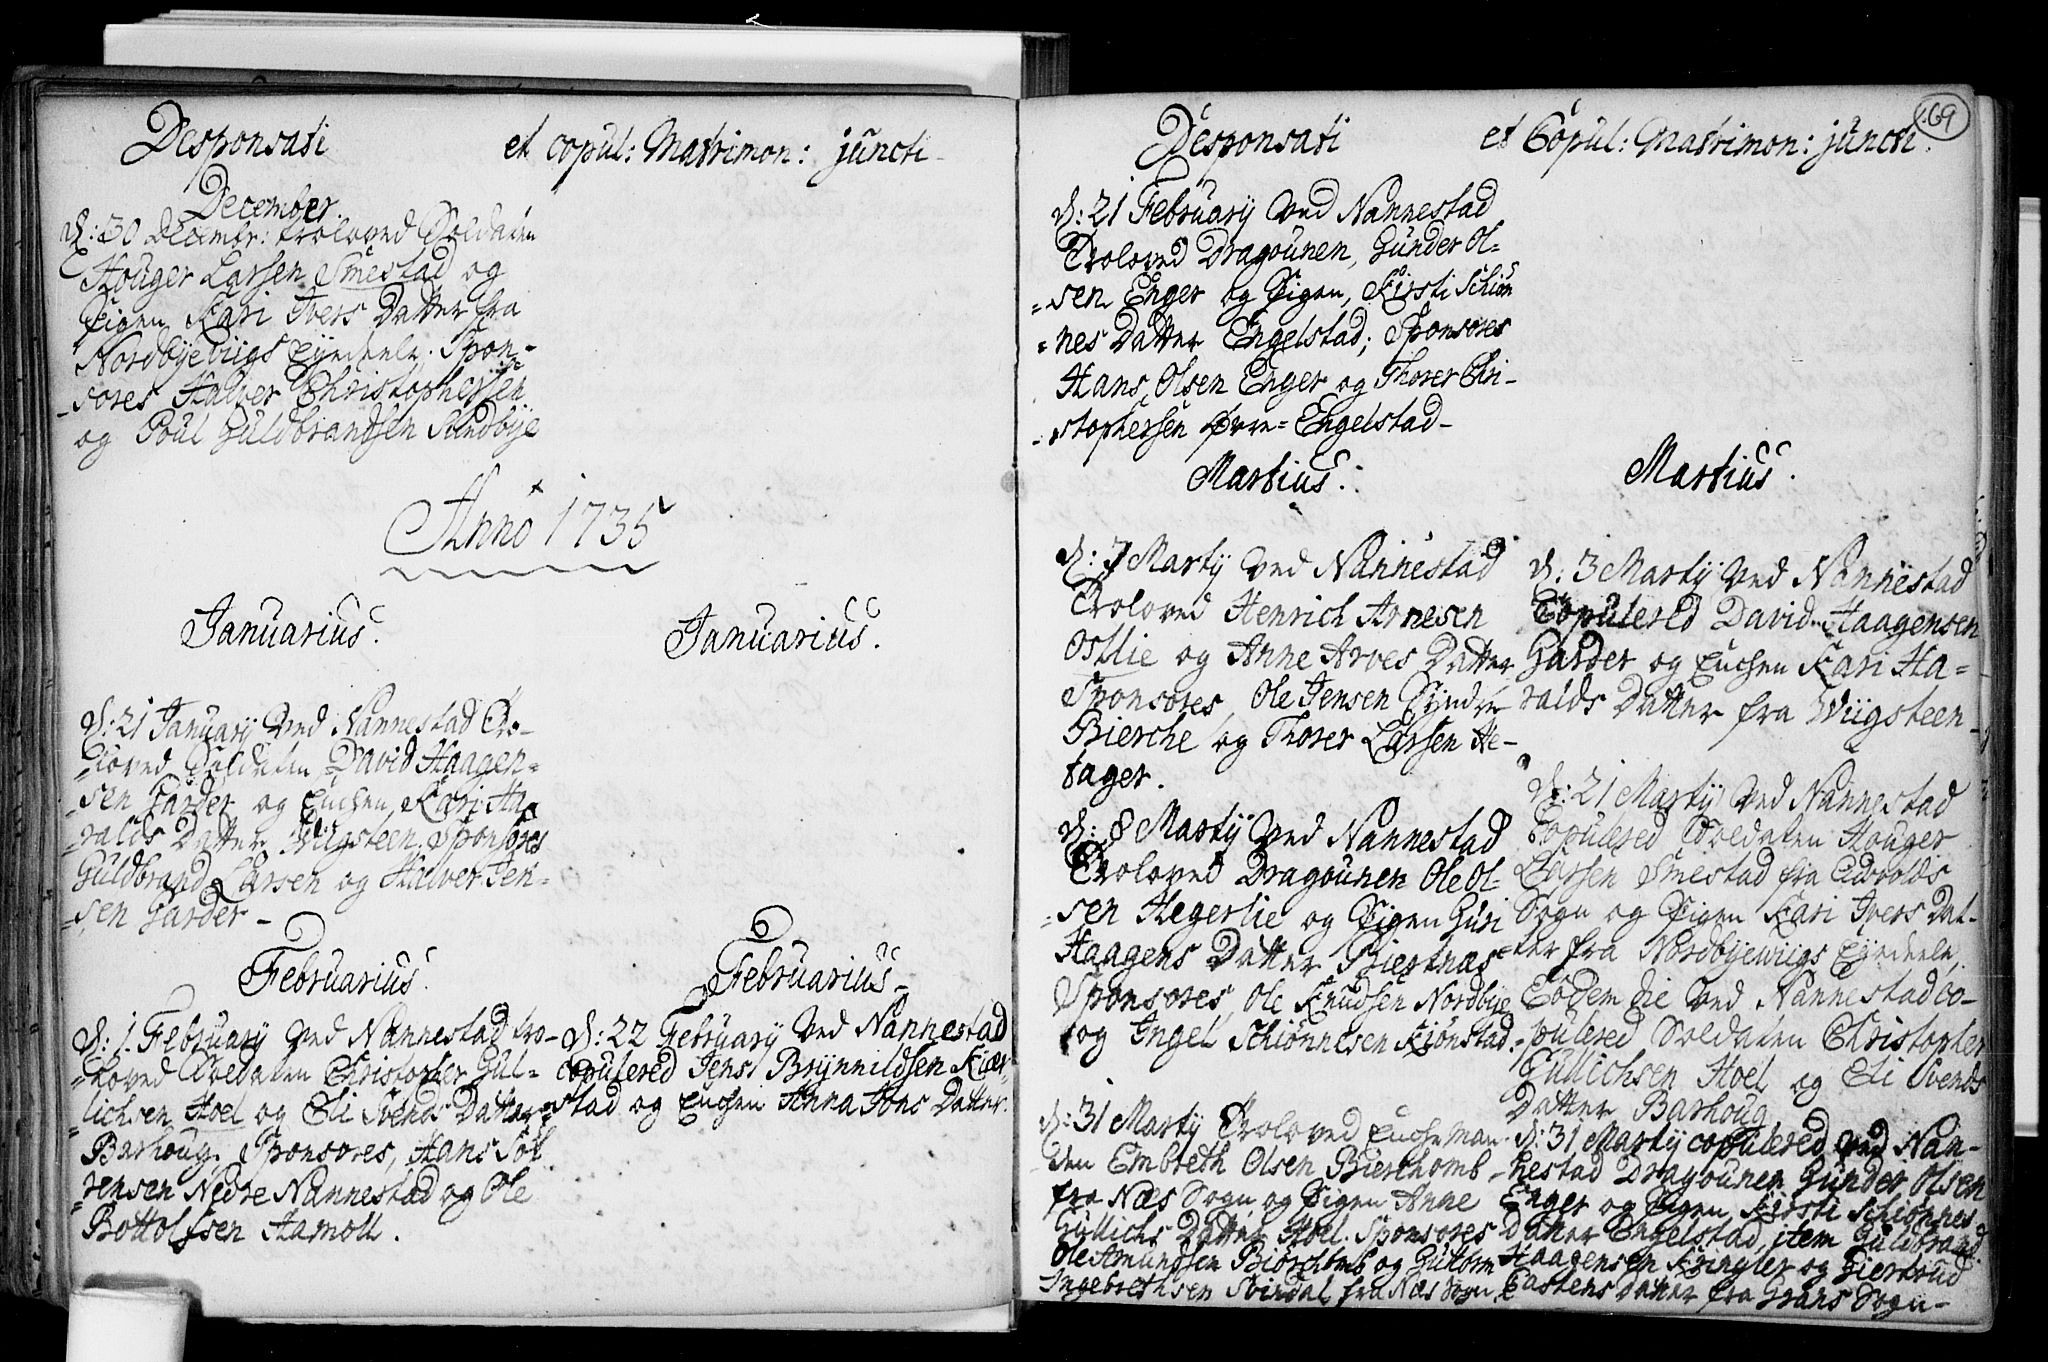 Desponsati et copul: Matrimon: juncti
December
d: 30 Decembr: troloved Soldaten
Houger Larsen Smestad og
Pigen Kari Ivers Datter fra
Nordbyeviigs Eyedeele. Spon-
sores Halver Christophersen
og Poul Guldbrandsen Sundbye
Anno 1735
Januarius.
d: 21 January ved Nannestad Tro-
loved Soldaten David Haagen=
=sen Garder og Enchen Kari Ha
=ralds Datter Wiigsteen. Sponsores
Guldbrand Larsen og Halver Jen-
=sen Garder -
Februarius.
d: 1 February ved Nannestad tro-
=loved Soldaten Christopher Gul=
=lichsen Hoel og Eli Svends Datter
Barhoug. Sponsores, Hans Sö-
rensen Nedre Nannestad og Ole
Bottolfsen Hamoll.
Januarius.
Februarius
d: 22 February ved Nannestad
copulered Jens Brynnildsen Kier-
stad og Enchen Anna Jons Datter.
69
Desponsati et Copul: Matrimon: juncti.
d: 21 February ved Nannestad
Troloved Dragounen, Gunder Ol=
=sen Enger og Pigen, Kirsti Schiön
=nes Datter Engelstad; Sponsores
Hans Olsen Enger og Thorer Chri-
-stophersen Øvre=Engelstad-
Martius.
d: 7 Marty ved Nannestad
Troloved Henrich Arnesen
Ostlie og Anne Arves Datter
Sponsores Ole Jensen Syndre
Bierche og Thorer Larsen He-
tager.
d: 8 Marty ved Nannestad
Troloved Dragounen Ole Ol-
=sen Hegerlie og Pigen Guri
Haagens Datter Biertnæs
Sponsores, Ole Knudsen Nordbye
og Ingel Schiönnesen Kiönstad.
d: 31 Marty Troloved Enche Man-
den Embreth Olsen Bierchomb
fra Næs Sogn og Pigen Anne
Gullichs Datter Hoel. Sponsores
Ole Amundsen Biörchomb og Guttorm
Ingebrethsen Svindal fra Næs Sogn
Martius.
d: 3 Marty ved Nannestad
Copulered David Haagensen
Garder og Enchen Kari Ha=
ralds Datter fra Wiigsteen
d: 21 Marty ved Nannestad
Copulered Soldaten Houger
Larsen Smestad fra Eidsvolds
Sogn og Pigen Kari Ivers Dat-
ter fra Nordbyewiigs Eyedeele,
Eodem die ved Nannestad co-
-pulered Soldaten Christopher
Gullichsen Hoel og Eli Svends
Datter Barhoug
d: 31 Marty copulered ved Nan-
nestad Dragounen Gunder Olsen
Enger og Pigen Kirsti Schiönnes
Datter Engelstad, item Guldbrand
Haagensen Kringler og Giertrud
Castens Datter fra Grans Sogn-